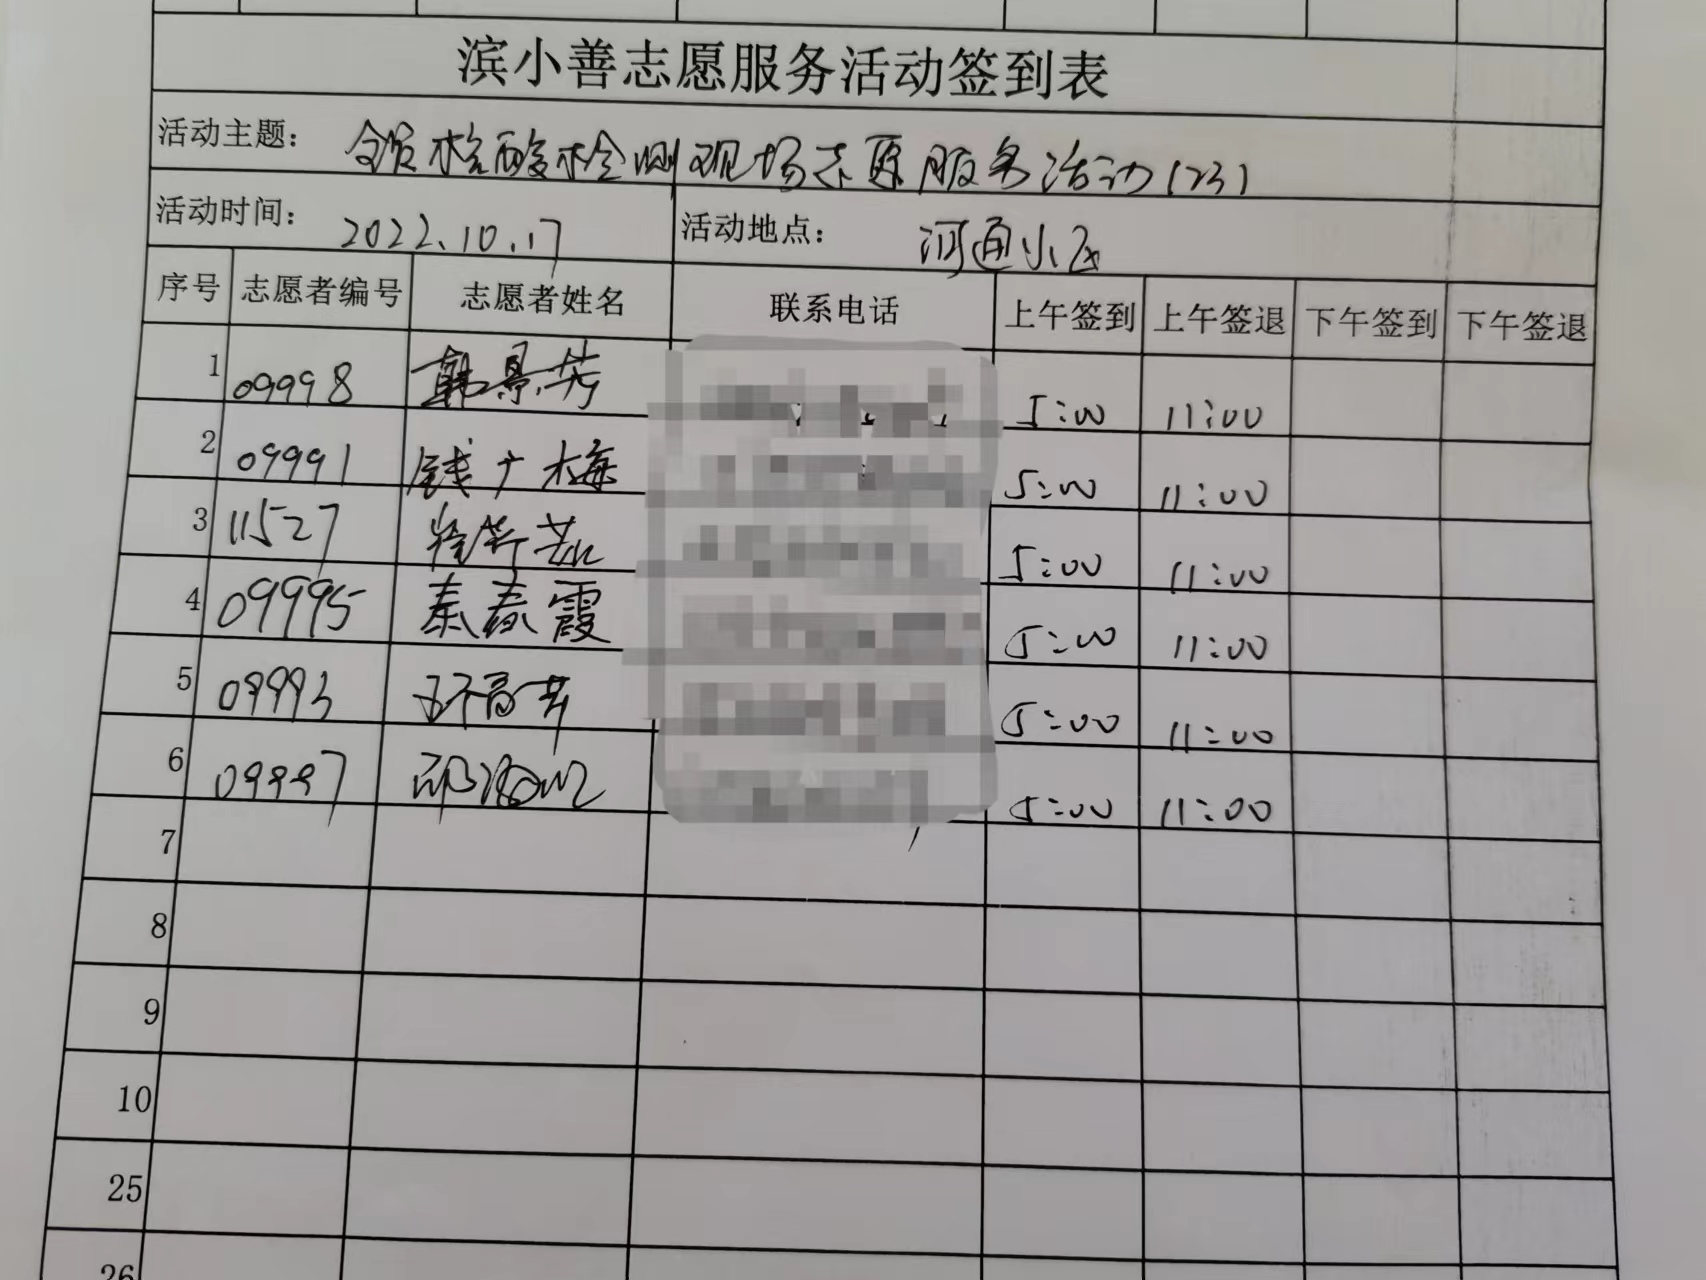 滨小善志愿服务活动签到表
活动主题： 全员核酸检测现场志愿服务活动(23)
活动时间： 2022.10.17 活动地点： 河通小区
序号 志愿者编号 志愿者姓名 联系电话 上午签到 上午签退 下午签到 下午签退
1 09998 韩景芳 5:00 11:00
2 09991 钱广梅 5:00 11:00
3 11527 5:00 11:00
4 09995 秦春霞 5:00 11:00
5 09993 5:00 11:00
6 09997 5:00 11:00
7
8
9
10
25
26